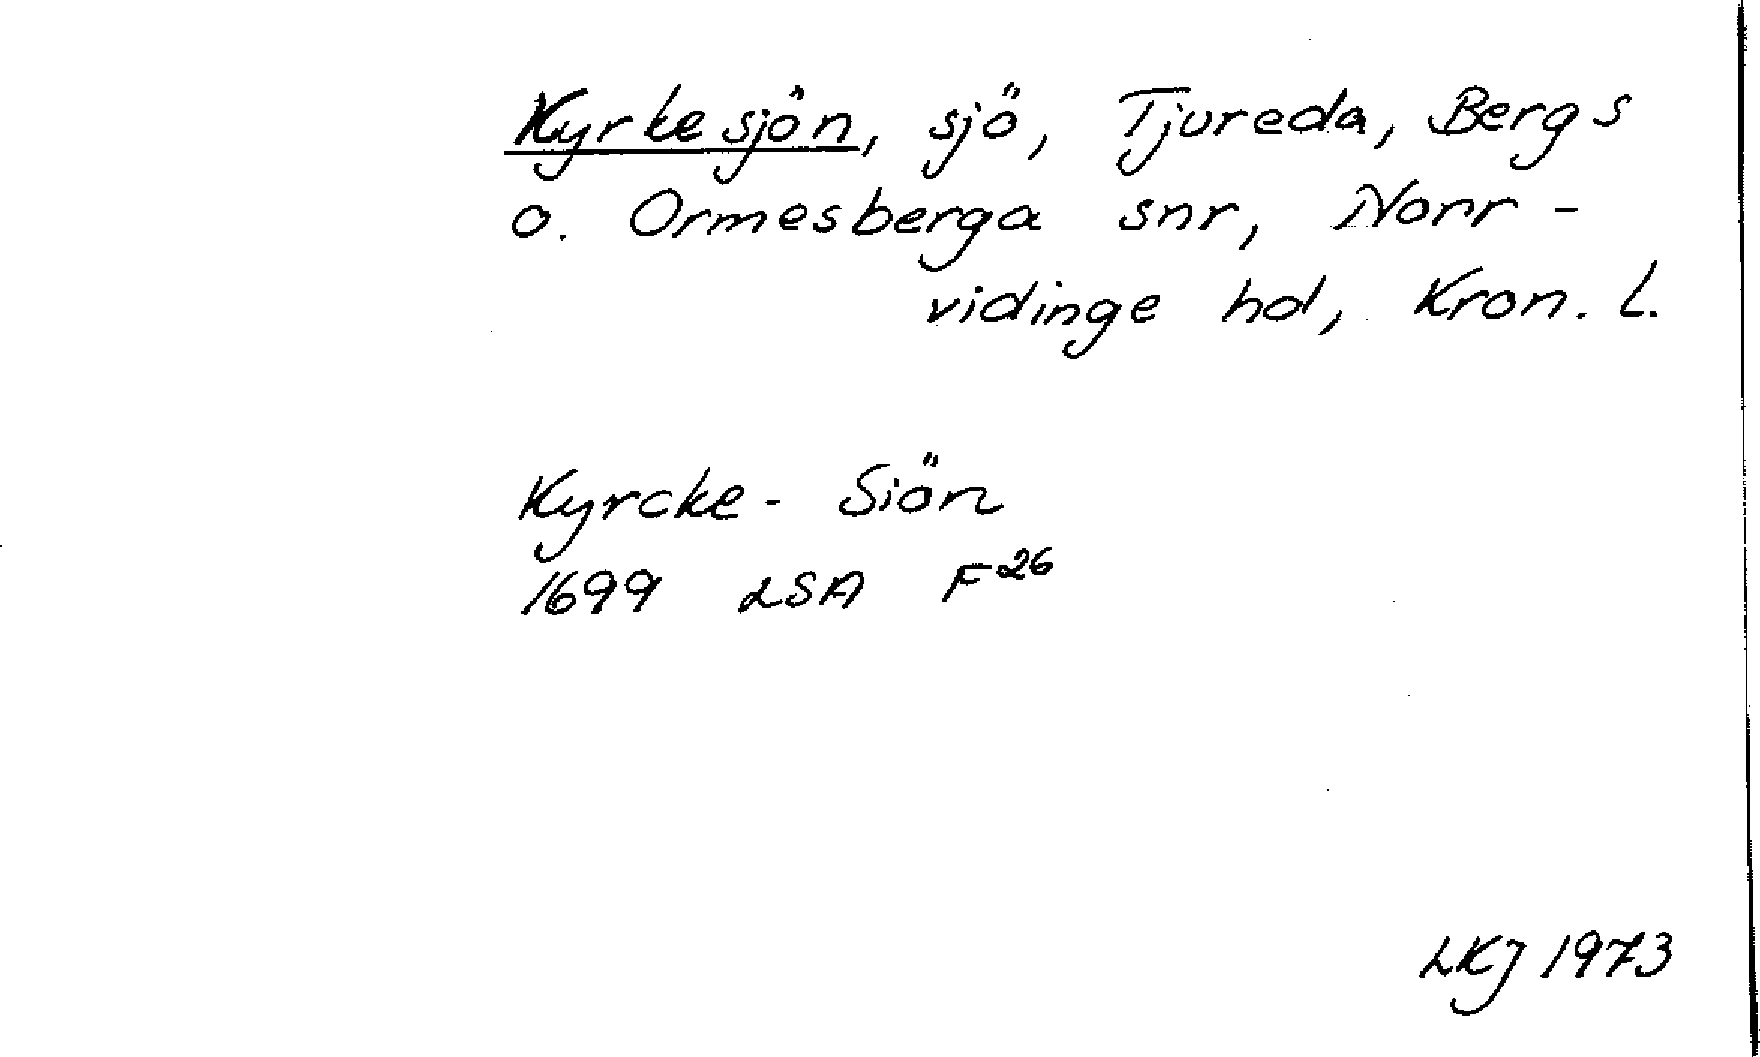 Kyrkesjön, sjö, Tjureda, Bergs
o. Ormesberga snr, Norr-
vidinge hd, Kron. L.
Kyrcke-Siön
1699 LSA F²⁶
LKJ 1973